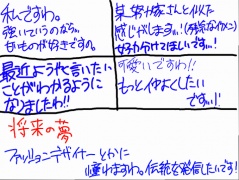 私ですわ。
強いていうのなら、
甘いものが好きです。
某努力家さんと似た
感じがします…!(残念なイケメン)
女子力分けてほしいです…!
最近ようやく言いたい
ことがわかるように
なりましたわ!!
可愛いですわ!!
もっと仲よくしたい
です…!
将来の夢
ファッションデザイナーとかに
憧れますわ。伝統を発信したいです!